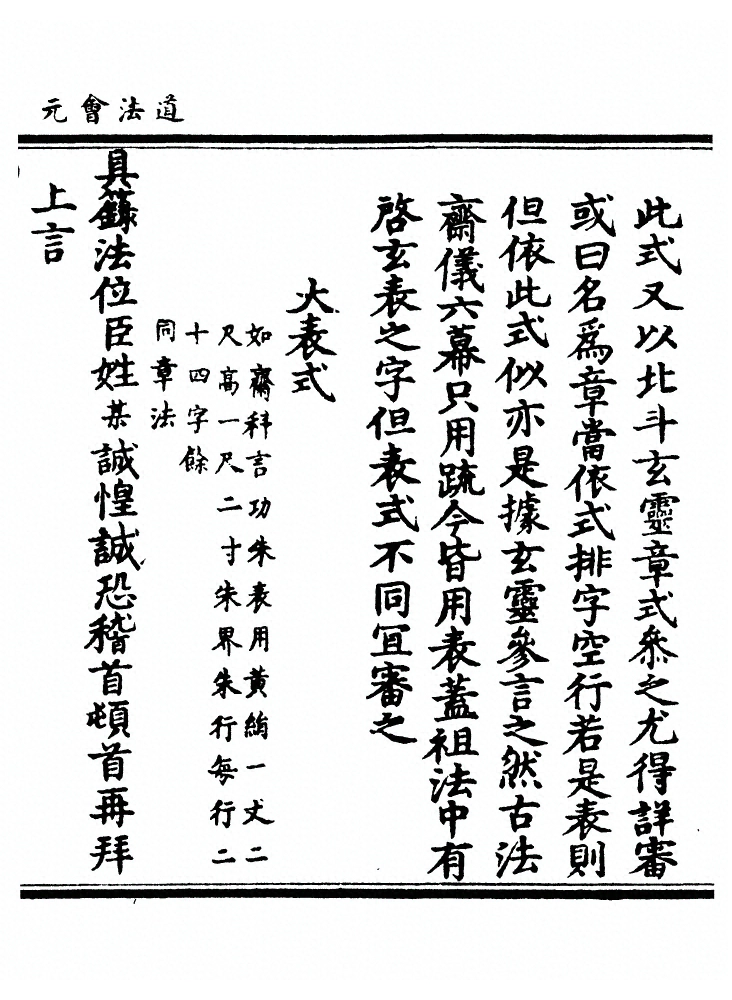 道法會元
此式又以北斗玄靈章式叅之尤得詳審
或曰名爲章當依式排字空行若是表則
但依此式似亦是據玄靈參言之然古法
齋儀六幕只用疏今皆用表蓋祖法中有
啓玄表之字但表式不同宜審之
大表式
如齋科言功朱表用黃絹一丈二
尺高一尺二寸朱界朱行每行二
十四字餘
同章法
具籙法位臣姓某誠惶誠恐稽首頓首再拜
上言